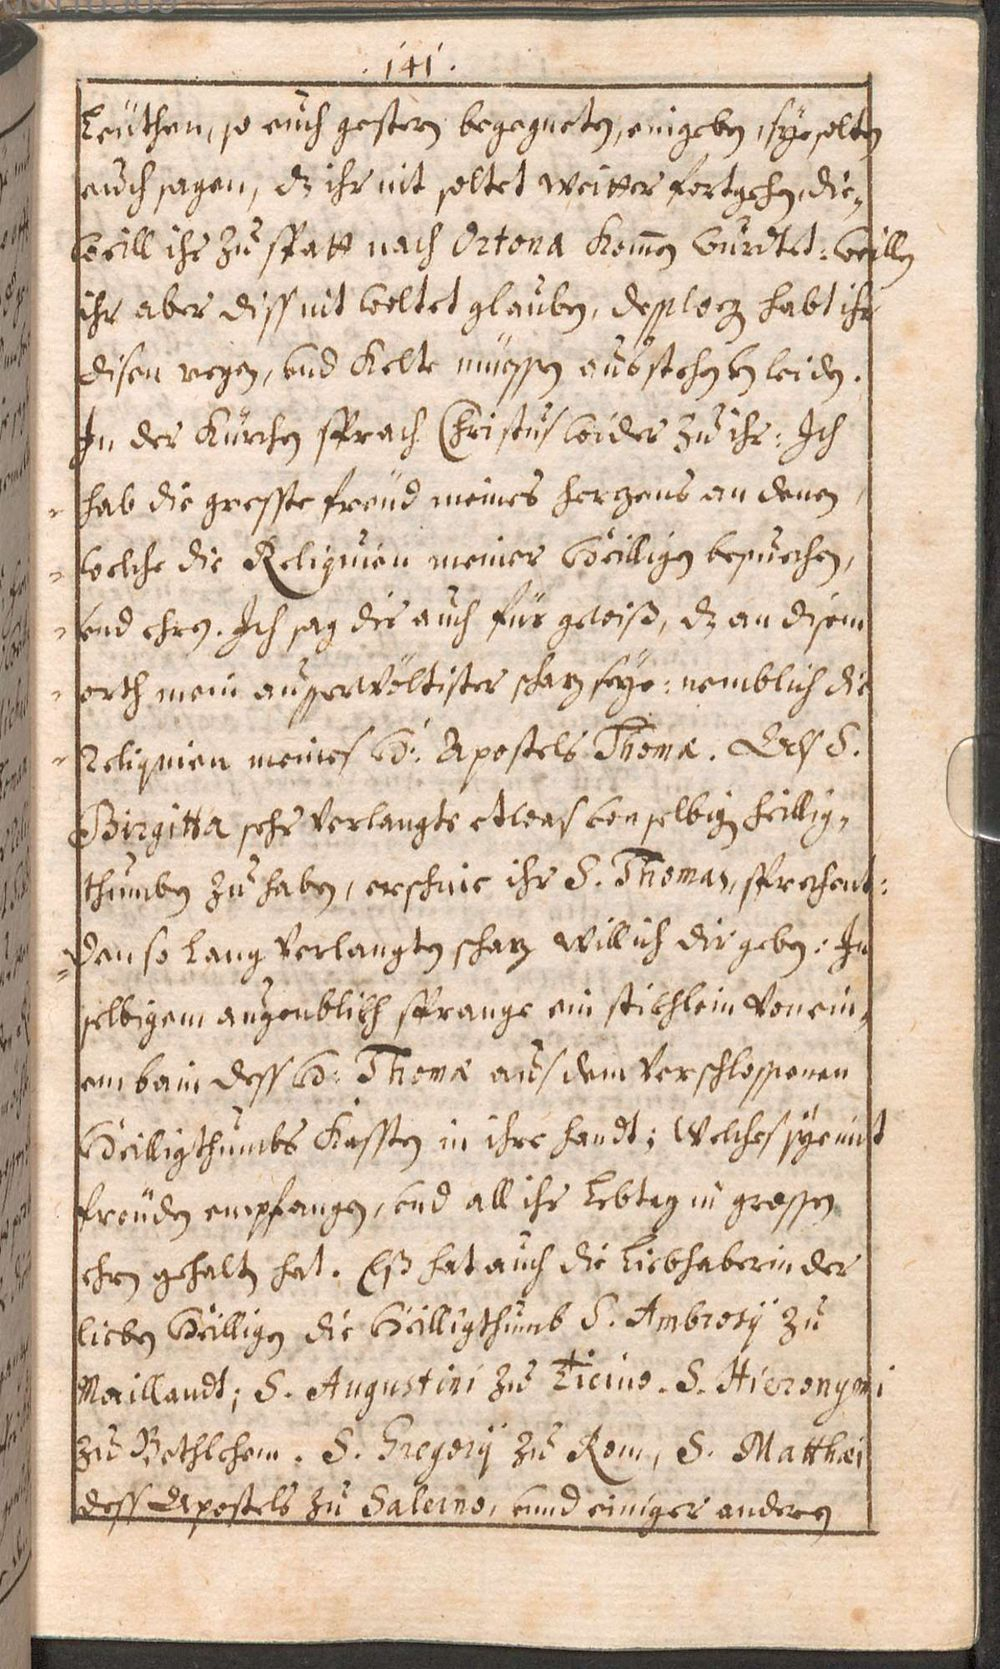 . 141 .
Leüthen, so euch gestern begegneten, eingeben, sye solten
euch sagen, dz ihr nit soltet weitter fortgehen, die,,
weill ihr zu spatt nach Ortona kom̄en wurdtet: weillen
ihr aber diss nit woltet glauben, desswegen habt ihr
disen regen, und kelte müessen ausstehen leiden.
In der Kürchen sprach Christus wider zu ihr: Ich
hab die gresste freüd meines hertzens an denen,
welche die Reliquien meiner Heilligen besuechen,
und ehren. Ich sag dir auch für gewiß, dz an disem
orth mein ausserwöltister schatz seye: nemblich die
Reliquien meines H: Apostels Thomæ. Als S.
Birgitta sehr verlangte etwas von selbigen heillig,,
thumben zu haben, erschine ihr S. Thomas, sprechent:
Den so lang verlangten schatz will ich dir geben: In
selbigem augenblikh sprange ein stikhlein von ein,,
em bain dess H: Thomæ aus dem verschlossenen
Heilligthumbs Kassten in ihre handt; welches sye mit
freüden empfangen, und all ihr Lebtag in grossen
ehren gehalten hat. Eß hat auch die Liebhaberin der
lieben Heilligen die Heilligthumb S. Ambrosij zu
Maillandt; S. Augustini zu Ticino. S. Hieronymi
zu Bethlehem. S. Gregorij zu Rom, S. Matthæi
dess Apostels zu Salerno, unnd einiger anderen